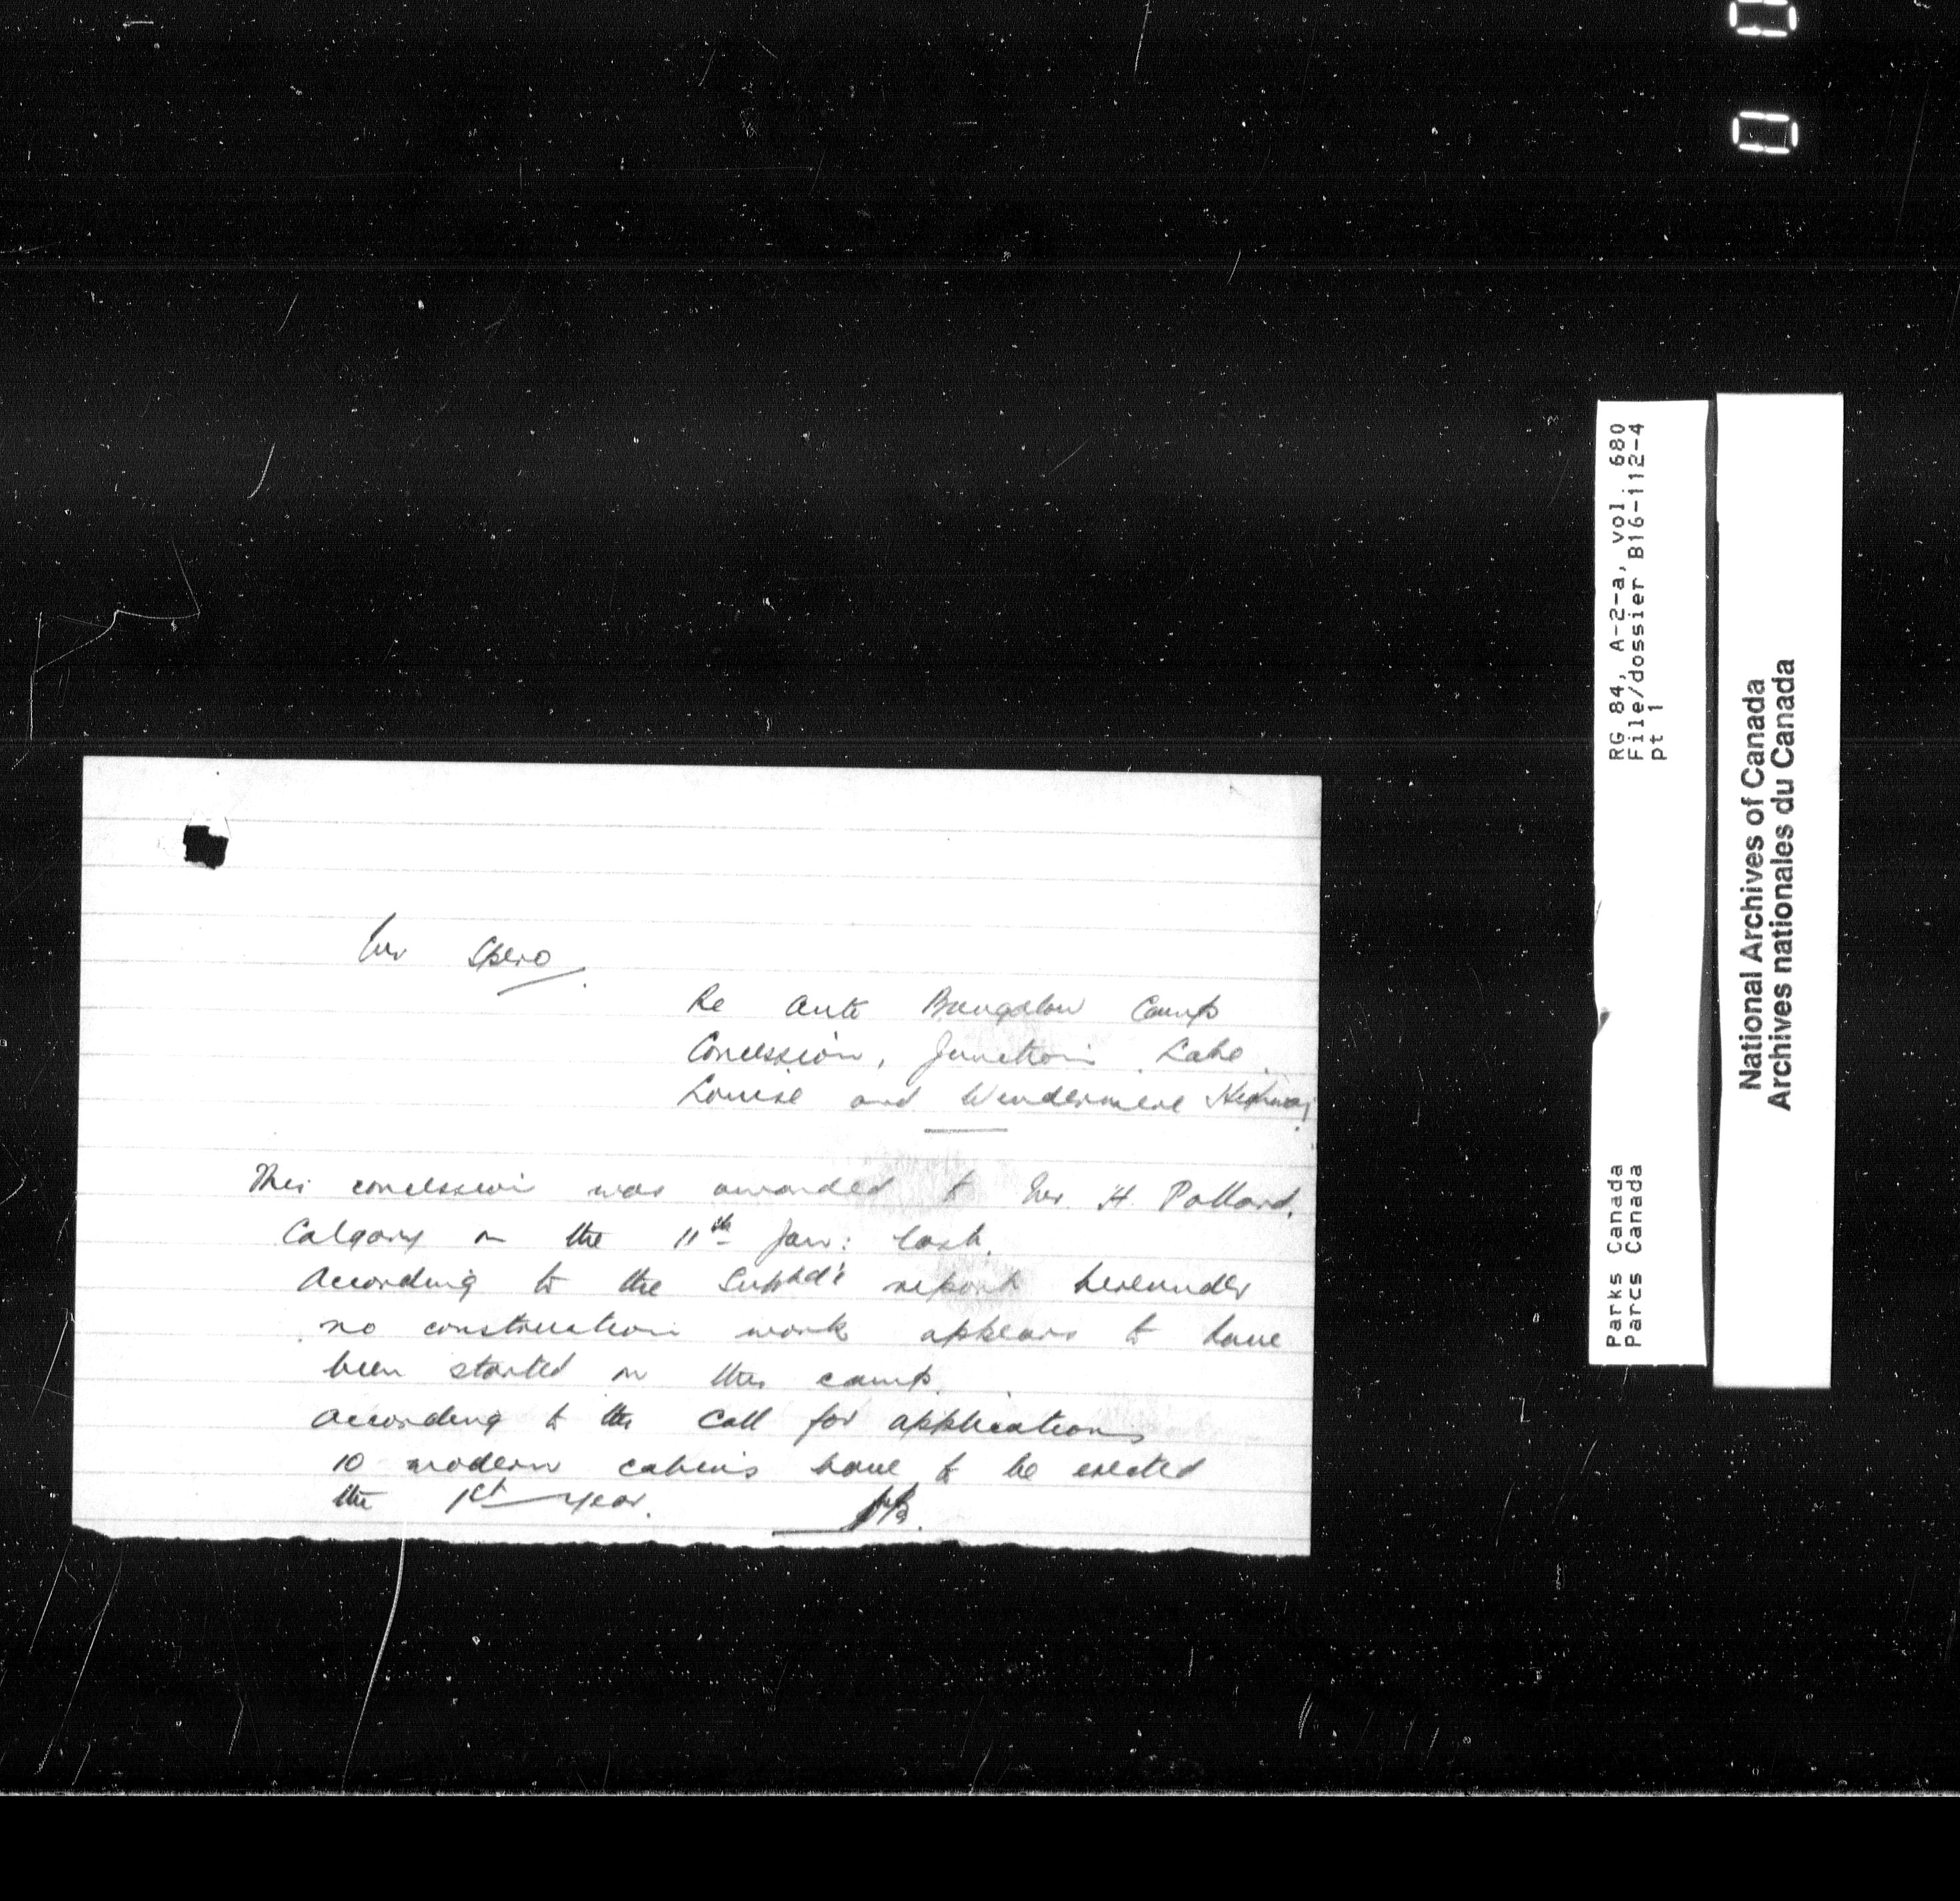 Mr Spero.
Re Auto Bungalow Camp
Concession, Junction Lake
Louise and Windermere Highway
This concession was awarded to Mr. H. Pollard,
Calgary on the 11th Jan: last.
According to the Suptd's report hereunder
no construction work appears to have
been started on this camp.
According to the call for applications
10 modern cabins have to be erected
the 1st year.
RG 84, A-2-a, vol. 680
File/dossier B16-112-4
pt 1
Parks Canada
Parcs Canada
National Archives of Canada
Archives nationales du Canada